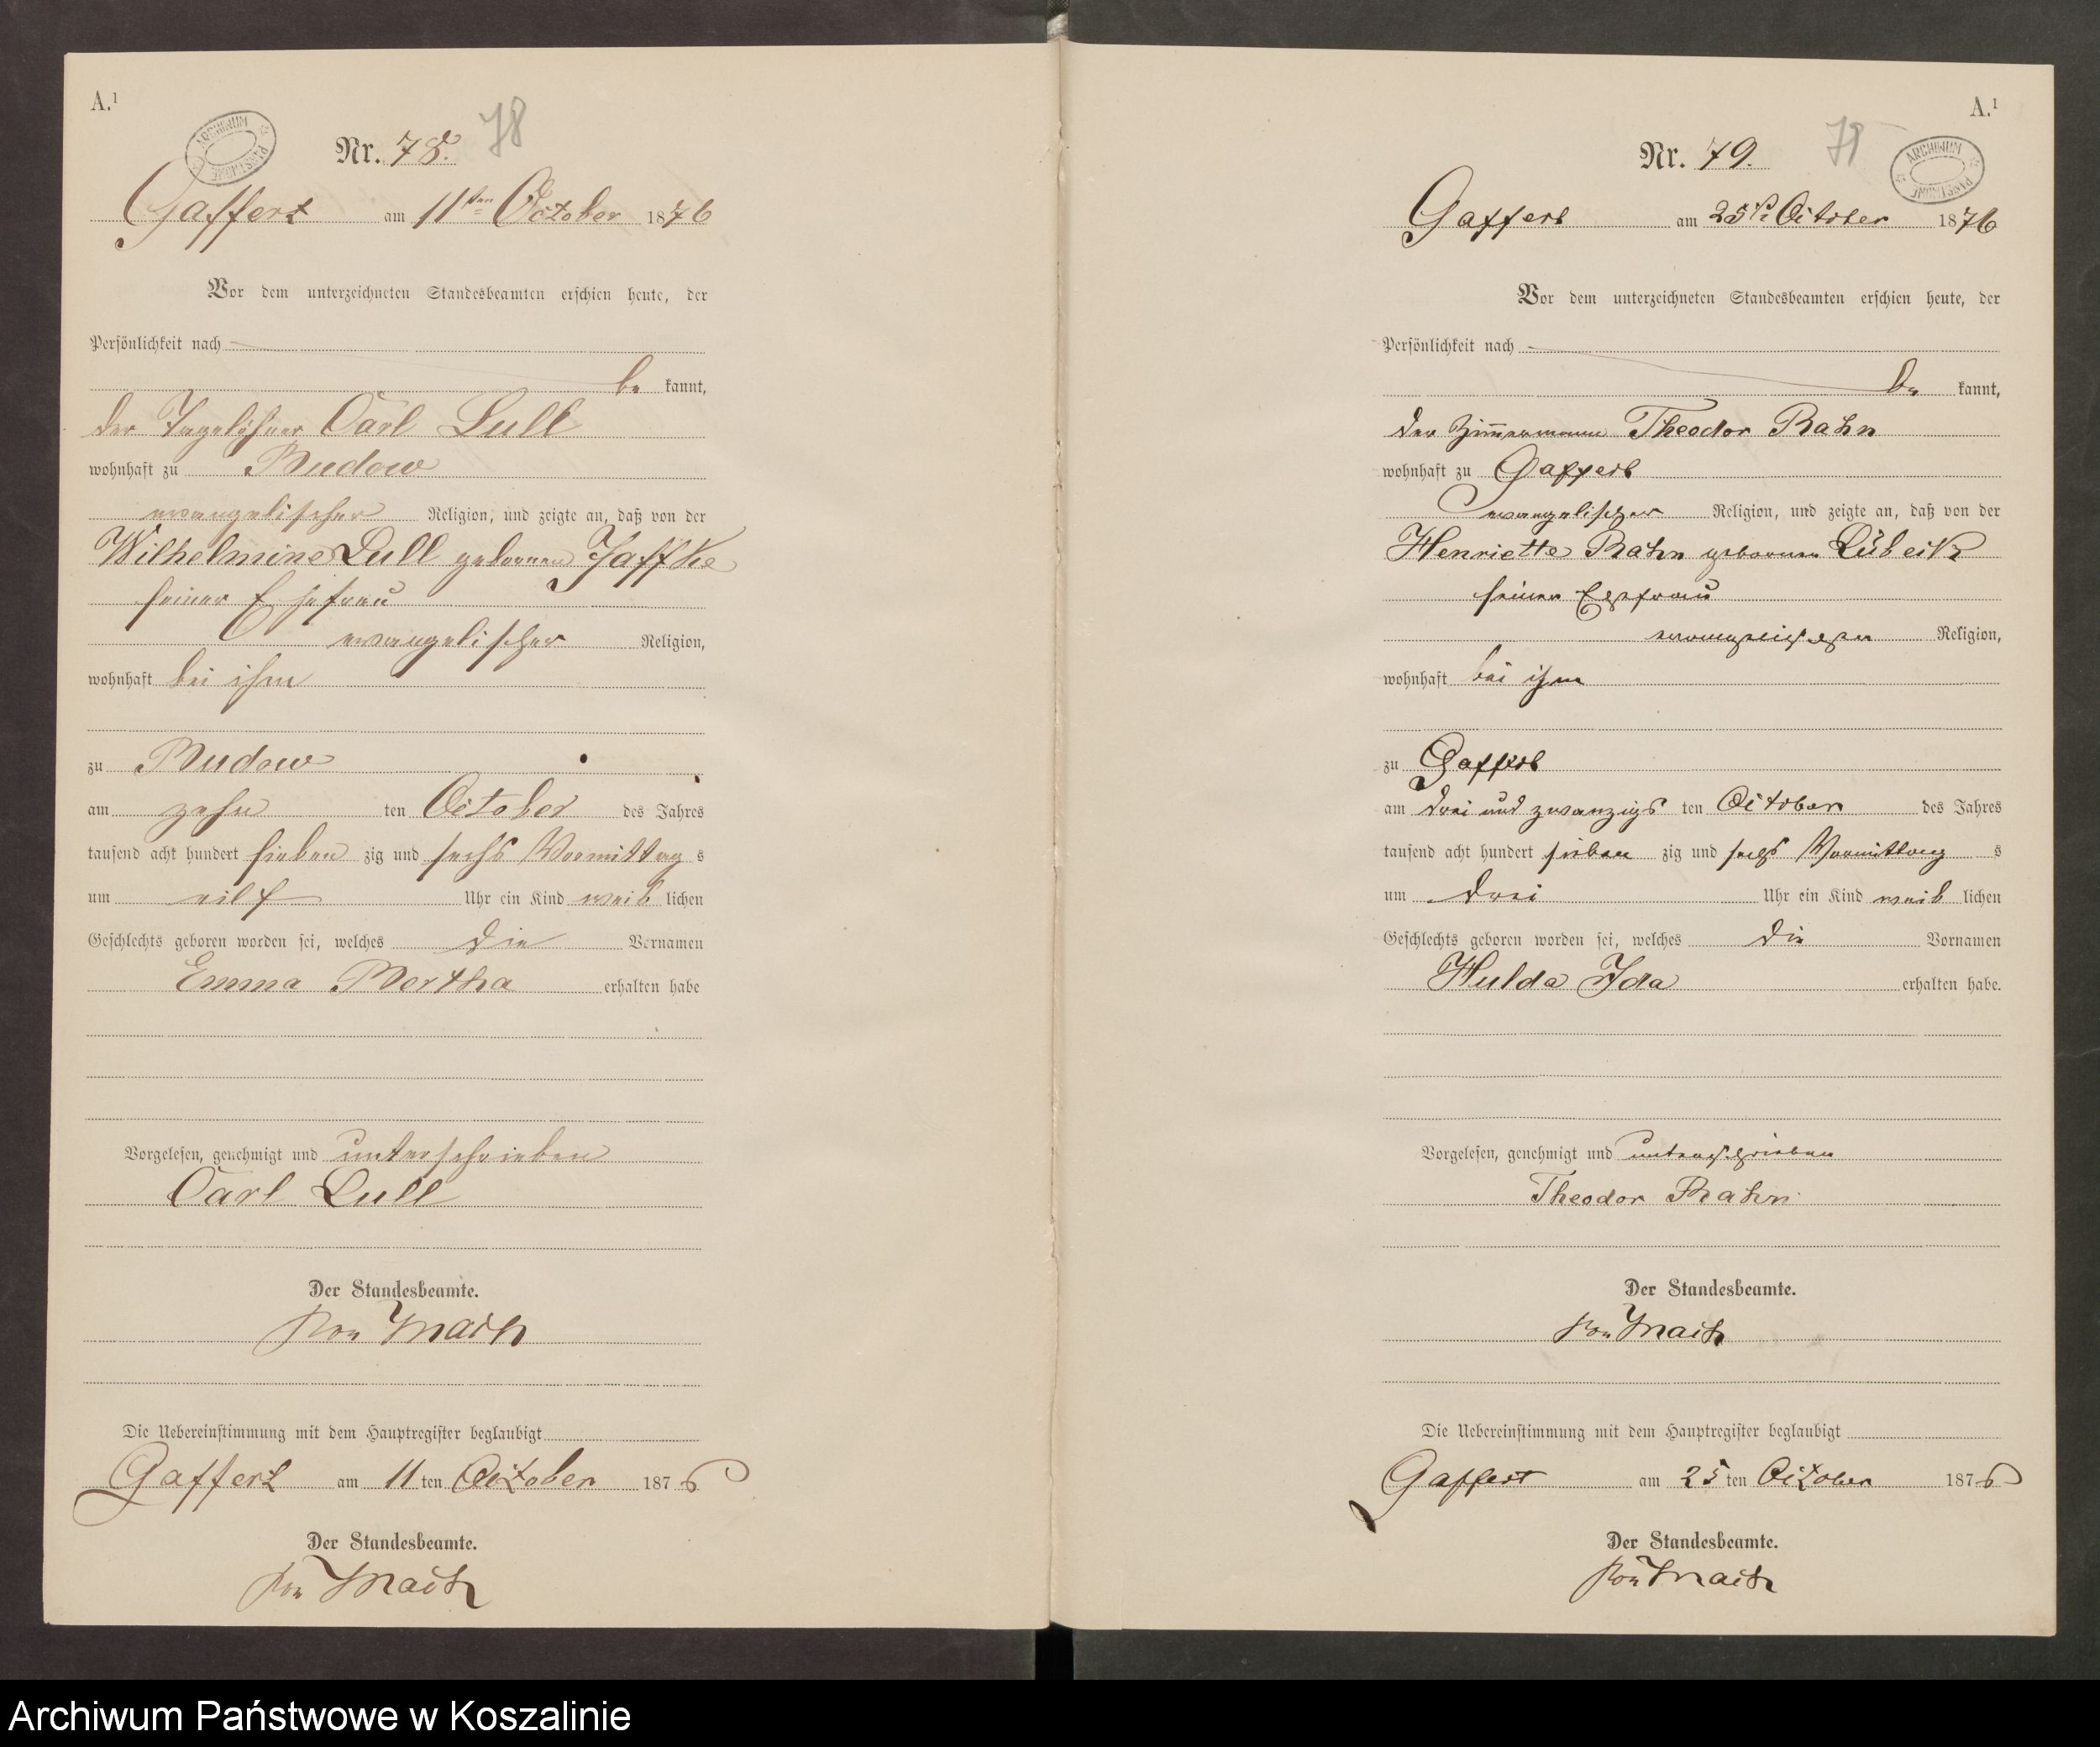 A.¹
ARCHIWUM PAŃSTWOWE
Nr. 78.
78
Gaffert am 11ten October 1876
Vor dem unterzeichneten Standesbeamten erschien heute, der
Persönlichkeit nach
be kannt,
der Tagelöhner Carl Lull
wohnhaft zu Budow
evangelischer Religion, und zeigte an, daß von der
Wilhelmine Lull geborenen Jaffke
seiner Ehefrau
evangelischer Religion,
wohnhaft bei ihm
zu Budow
am zehn ten October des Jahres
tausend acht hundert sieben zig und sechs Vormittag s
um eilf Uhr ein Kind weib lichen
Geschlechts geboren worden sei, welches die Vornamen
Emma Bertha erhalten habe
Vorgelesen, genehmigt und unterschrieben
Carl Lull
Der Standesbeamte.
von Mach
Die Uebereinstimmung mit dem Hauptregister beglaubigt
Gaffert am 11 ten October 1876
Der Standesbeamte.
von Mach
A.¹
ARCHIWUM PAŃSTWOWE
Nr. 79.
79
Gaffert am 25t October 1876
Vor dem unterzeichneten Standesbeamten erschien heute, der
Persönlichkeit nach
be kannt,
der Zimmermann Theodor Rahn
wohnhaft zu Gaffert
evangelischer Religion, und zeigte an, daß von der
Henriette Rahn geborenen Lübeck
seiner Ehefrau
evangelischer Religion,
wohnhaft bei ihm
zu Gaffert
am drei und zwanzigs ten October des Jahres
tausend acht hundert sieben zig und sechs Vormittag s
um drei Uhr ein Kind weib lichen
Geschlechts geboren worden sei, welches die Vornamen
Hulda Ida erhalten habe.
Vorgelesen, genehmigt und unterschrieben
Theodor Rahn
Der Standesbeamte.
von Mach
Die Uebereinstimmung mit dem Hauptregister beglaubigt
Gaffert am 25 ten October 1876
Der Standesbeamte.
von Mach
Archiwum Państwowe w Koszalinie